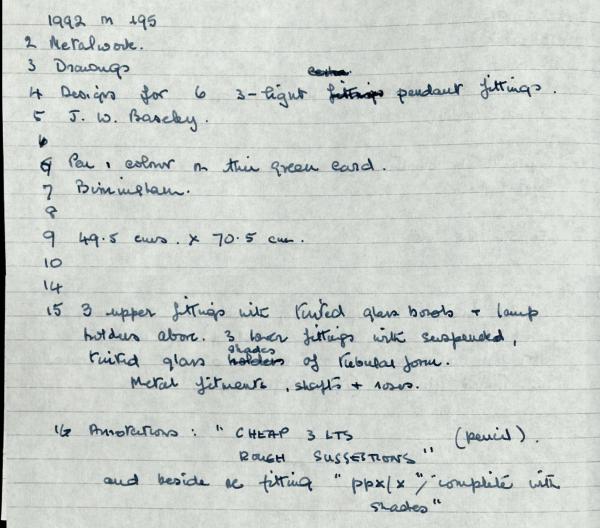 1992 m 195
2 Metalwork.
3 Drawings
4 Designs for 6 3-light fittings pendant fittings.
5 J. W. Baseley.
6
6 Pen, colour on thin green card.
7 Birmingham.
8
9 49.5 cms. x 70.5 cm.
10
14
15 3 upper fittings with tinted glass bowls + lamp
holders above. 3 lower fittings with suspended,
shades
tinted glass holders of tubular form.
Metal fitments, shafts + roses.
16 Annotations: "CHEAP 3 LTS (pencil).
ROUGH SUGGESTIONS"
and beside one fitting "ppx/x" "complete with
shades"